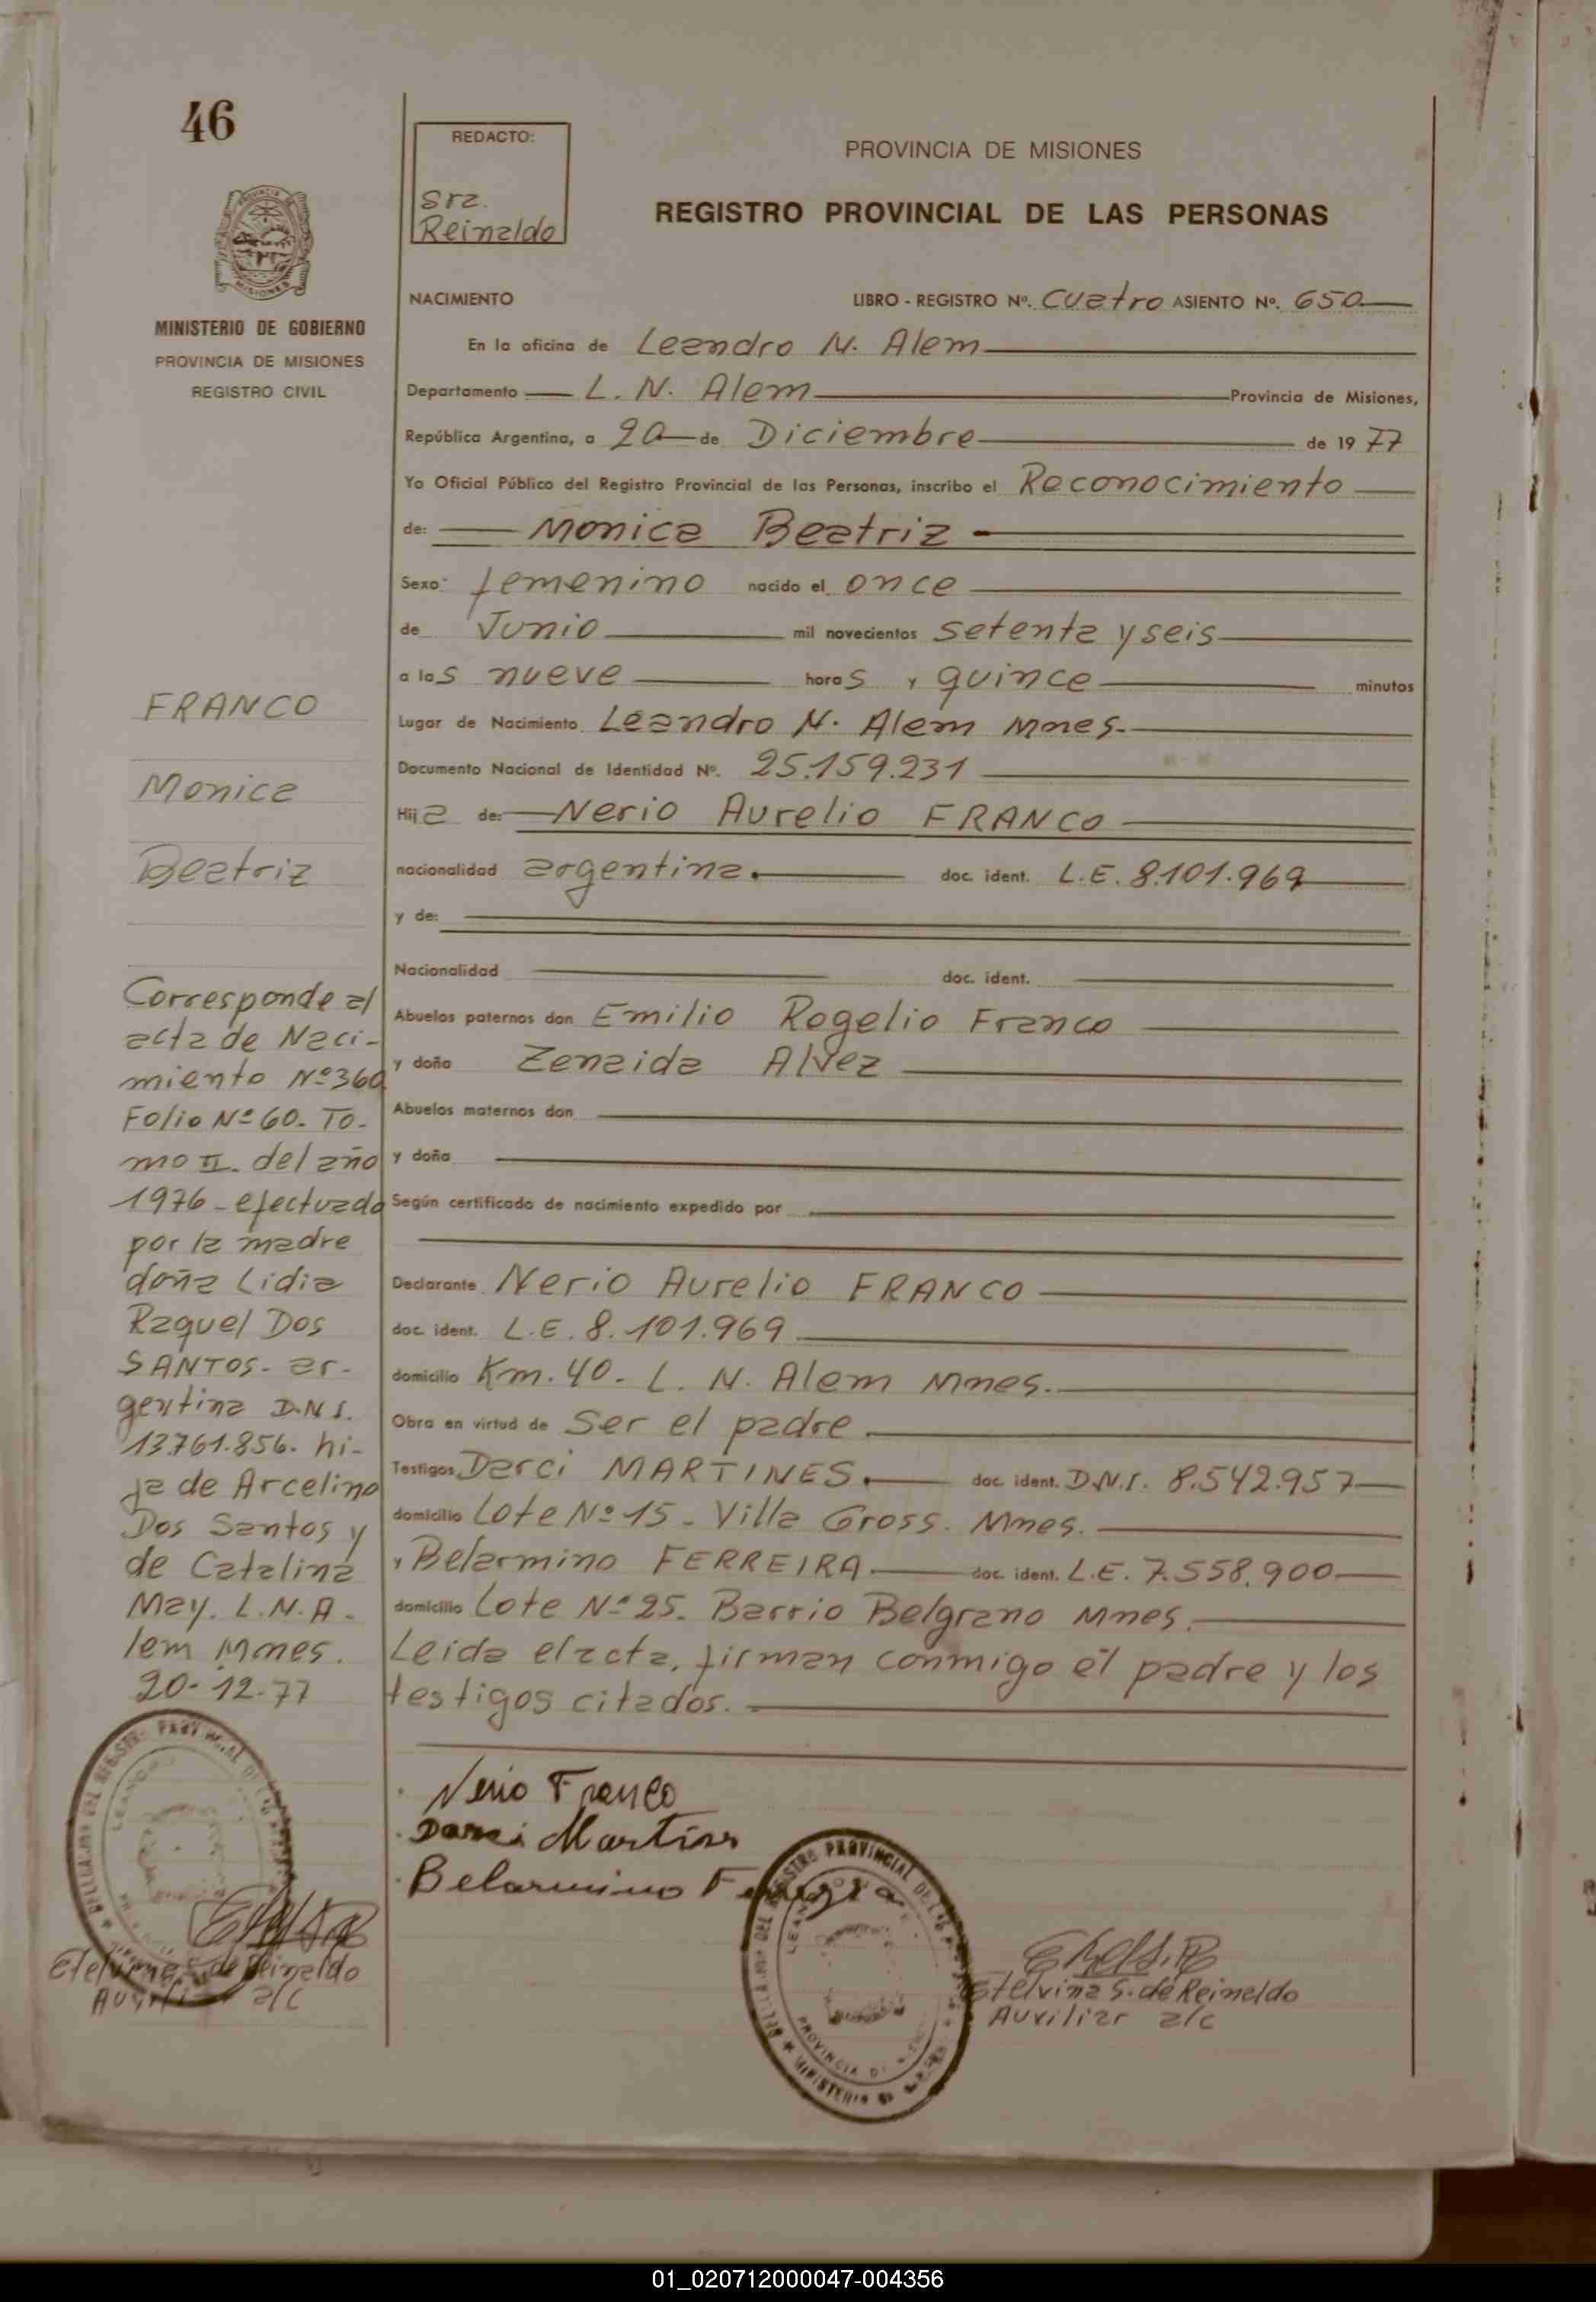 46
REDACTO:
Sra.
Reinaldo
PROVINCIA DE MISIONES
REGISTRO PROVINCIAL DE LAS PERSONAS
MINISTERIO DE GOBIERNO
PROVINCIA DE MISIONES
REGISTRO CIVIL
NACIMIENTO LIBRO - REGISTRO Nº. Cuatro ASIENTO Nº. 650
En la oficina de Leandro N. Alem
Departamento L. N. Alem Provincia de Misiones,
República Argentina, a 20 de Diciembre de 1977
Yo Oficial Público del Registro Provincial de las Personas, inscribo el Reconocimiento
de: Monica Beatriz
Sexo: femenino nacido el once
de Junio mil novecientos setenta y seis
a las nueve horas y quince minutos
Lugar de Nacimiento Leandro N. Alem Mnes.
Documento Nacional de Identidad Nº. 25.159.231
Hija de: Nerio Aurelio FRANCO
nacionalidad argentina. doc. ident. L.E. 8.101.969
y de:
Nacionalidad doc. ident.
Abuelos paternos don Emilio Rogelio Franco
y doña Zenaida Alvez
Abuelos maternos don
y doña
Según certificado de nacimiento expedido por
Declarante Nerio Aurelio FRANCO
doc. ident. L.E. 8.101.969
domicilio Km. 40. L. N. Alem Mnes.
Obra en virtud de Ser el padre
Testigos Darci MARTINES. doc. ident. D.N.I. 8.542.957
domicilio Lote Nº 15 - Villa Gross. Mnes.
y Belarmino FERREIRA doc. ident. L.E. 7.558.900
domicilio Lote Nº 25. Barrio Belgrano Mnes.
Leida el acta, firman conmigo el padre y los
testigos citados.
FRANCO
Monica
Beatriz
Corresponde al
acta de Naci-
miento Nº 360
Folio Nº 60. To-
mo II. del año
1976 - efectuado
por la madre
doña Lidia
Raquel Dos
SANTOS. ar-
gentina D.N.I.
13.761.856. hi-
ja de Arcelino
Dos Santos y
de Catalina
May. L. N. A-
lem Mnes.
20-12-77
Etelvina S. de Reinaldo
Auxiliar a/c
Nerio Franco
Darci Martins
Belarmino Ferreira
Etelvina S. de Reinaldo
Auxiliar a/c
01_020712000047-004356